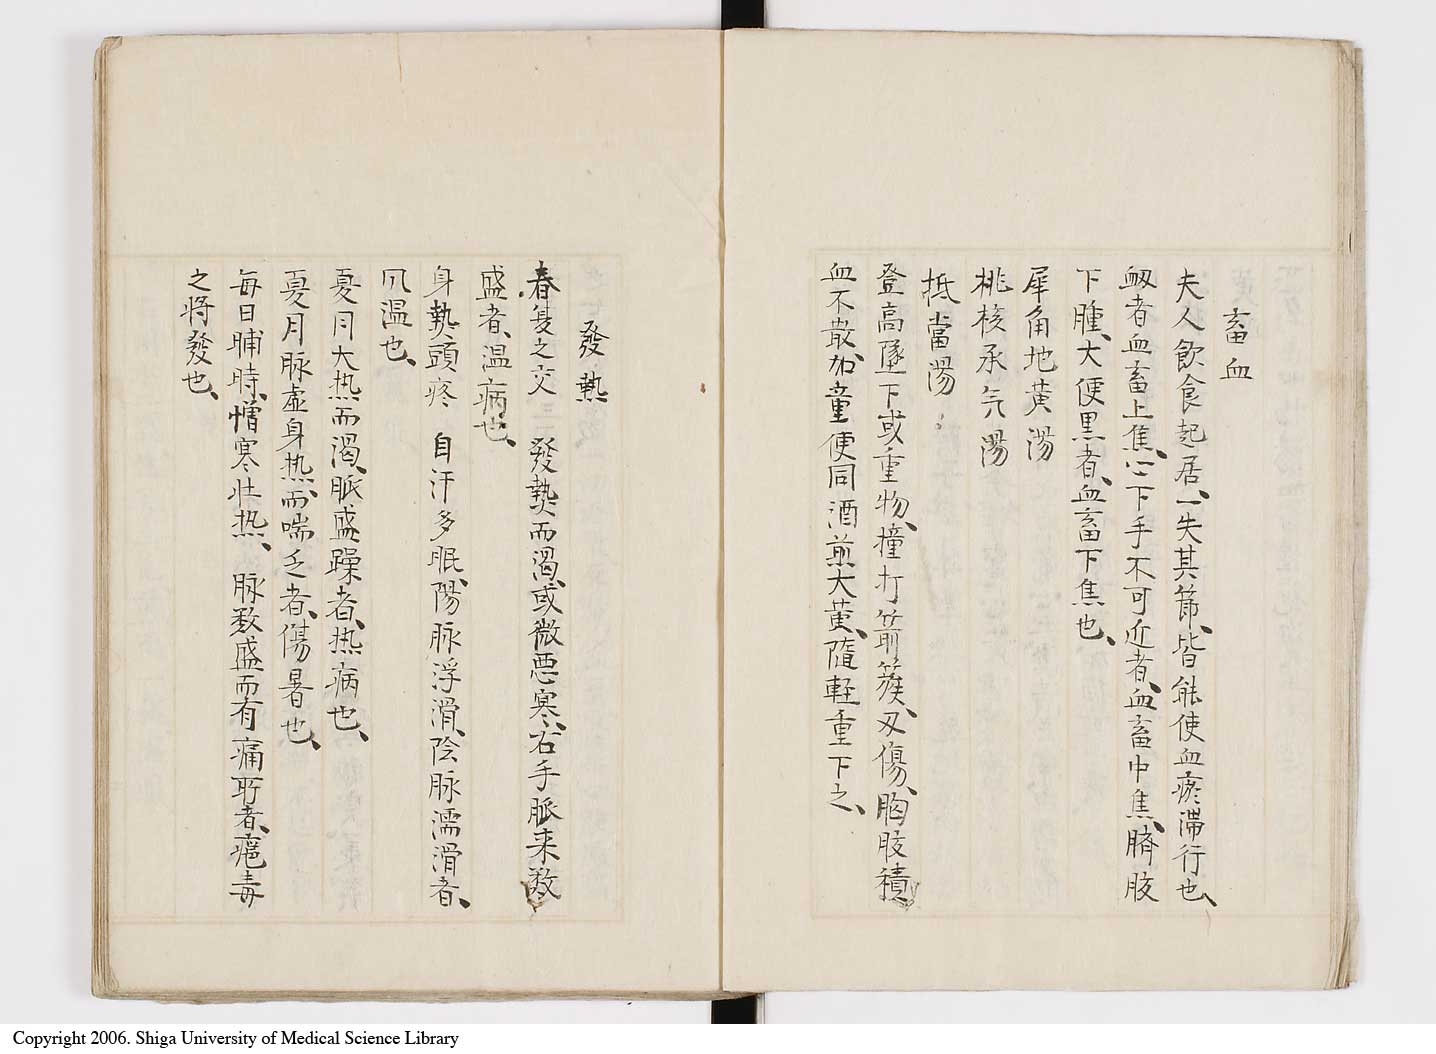 畜血
夫人飲食起居、一失其節、皆能使血瘀滞行也、
衂者血畜上焦、心下手不可近者、血畜中焦、臍肢
下腫、大便黒者、血畜下焦也、
犀角地黄湯
桃核承气湯
抵當湯
登高墜下或重物、撞打箭簇、刃傷、胸肢積
血不散、加童便同酒煎大黄、隨軽重下之、
發熱
春夏之交　發熱而渇、或微悪寒、右手脈来数
盛者、温病也、
身熱、頭疼　自汗多眠、陽脉浮滑、陰脉濡滑者、
风温也、
夏月大热而渇、脈盛躁者、热病也、
夏月脉虚身热、而喘乏者、傷暑也、
毎日晡時、憎寒壮热、　脉数盛而有痛所者、瘡毒
之将發也、
Copyright 2006. Shiga University of Medical Science Library